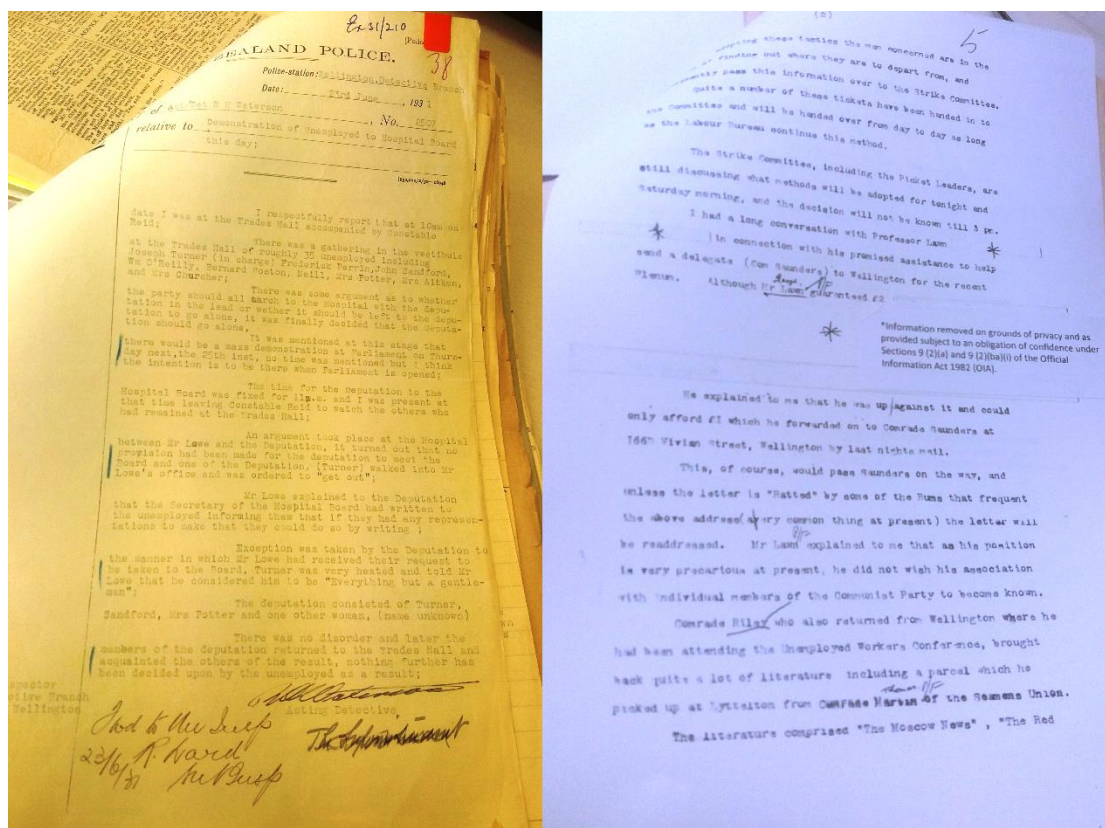 Ex 31/210
38
EALAND POLICE.
Police-station: Wellington, Detective Branch
Date: 23rd June, 1931
of Act/Det R H Paterson, No. 2507
relative to Demonstration of Unemployed to Hospital Board
this day;
I respectfully report that at 10am on
date I was at the Trades Hall accompanied by Constable
Reid;
There was a gathering in the vestibule
at the Trades Hall of roughly 35 unemployed including
Joseph Turner (in charge) Frederick Perrin, John Sandford,
Wm O'Reilly, Bernard Boston, Neill, Mrs Potter, Mrs Aitken,
and Mrs Churcher;
There was some argument as to whether
the party should all march to the Hospital with the depu-
tation in the lead or wether it should be left to the depu-
tation to go alone, it was finally decided that the Deputa-
tion should go alone,
It was mentioned at this stage that
there would be a mass demonstration at Parliament on Thurs-
day next, the 25th inst, no time was mentioned but I think
the intention is to be there when Parliament is opened;
The time for the Deputation to the
Hospital Board was fixed for 11a.m. and I was present at
that time leaving Constable Reid to watch the others who
had remained at the Trades Hall;
An argument took place at the Hospital
between Mr Lowe and the Deputation, it turned out that no
provision had been made for the deputation to meet the
Board and one of the Deputation, (Turner) walked into Mr
Lowe's office and was ordered to "get out";
Mr Lowe explained to the Deputation
that the Secretary of the Hospital Board had written to
the unemployed informing them that if they had any represen-
tations to make that they could do so by writing ;
Exception was taken by the Deputation to
the manner in which Mr Lowe had received their request to
be taken to the Board, Turner was very heated and told Mr
Lowe that he considered him to be "Everything but a gentle-
man";
The deputation consisted of Turner,
Sandford, Mrs Potter and one other woman, (name unknown)
There was no disorder and later the
members of the deputation returned to the Trades Hall and
acquainted the others of the result, nothing further has
been decided upon by the unemployed as a result;
Acting Detective
spector
ctive Branch
Wellington
23/6/31
R. Ward
5
adopting these tactics the men concerned are in the
finding out where they are to depart from, and
pass this information over to the Strike Committee.
Quite a number of these tickets have been handed in to
the Committee and will be handed over from day to day as long
as the Labour Bureau continue this method.
The Strike Committee, including the Picket Leaders, are
still discussing what methods will be adopted for tonight and
Saturday morning, and the decision will not be known till 3 pm.
I had a long conversation with Professor Lawn
*
*
in connection with his promised assistance to help
send a delegate (Com Saunders) to Wellington for the recent
Plenum. Although Mr Lawn guaranteed £2
*
*Information removed on grounds of privacy and as
provided subject to an obligation of confidence under
Sections 9 (2)(a) and 9 (2)(ba)(i) of the Official
Information Act 1982 (OIA).
He explained to me that he was up against it and could
only afford £I which he forwarded on to Comrade Saunders at
Vivian Street, Wellington by last nights mail.
This, of course, would pass Saunders on the way, and
unless the letter is "Ratted" by some of the Bums that frequent
the above address(a very common thing at present) the letter will
be readdressed. Mr Lawn explained to me that as his position
is very precarious at present, he did not wish his association
with individual members of the Communist Party to become known.
Comrade Riley who also returned from Wellington where he
had been attending the Unemployed Workers Conference, brought
back quite a lot of literature including a parcel which he
picked up at Lyttelton from Comrade Martin of the Seamens Union.
The literature comprised "The Moscow News", "The Red